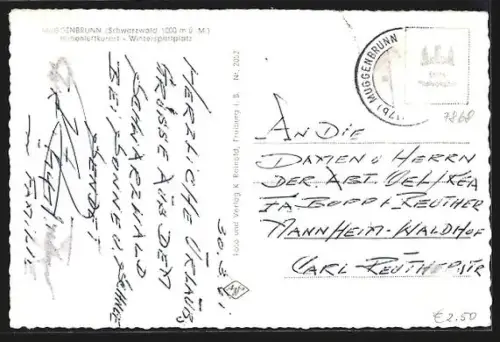 MUGGENBRUNN (Schwarzwald 1000 m ü. M.)
Höhenluftkurort - Wintersportplatz
30.3.61.
HERZLICHE URLAUBS
GRÜSSE AUS DEM
SCHWARZWALD
BEI SONNE U. SCHNEE
SENDET
FAMILIE
Foto und Verlag K. Reinold, Freiburg i. B. Nr. 2052
(17b) MUGGENBRUNN
7868
AN DIE
DAMEN U HERRN
DER ABT.
FA. BOPP & REUTHER
MANNHEIM-WALDHOF
CARL REUTHERSTR
€2.50